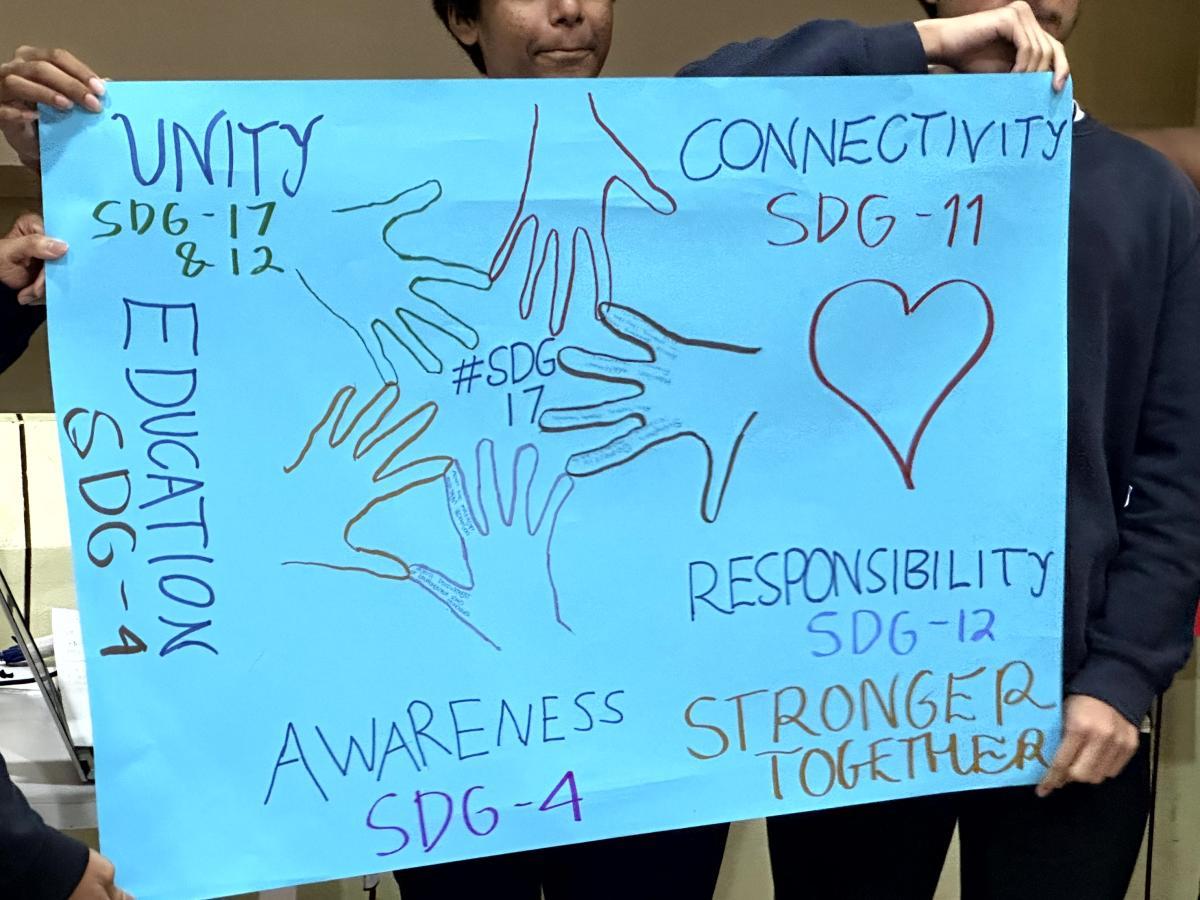 UNITY
SDG-17
& 12
CONNECTIVITY
SDG-11
EDUCATION
SDG-4
#SDG
17
RESPONSIBILITY
SDG-12
STRONGER
TOGETHER
AWARENESS
SDG-4